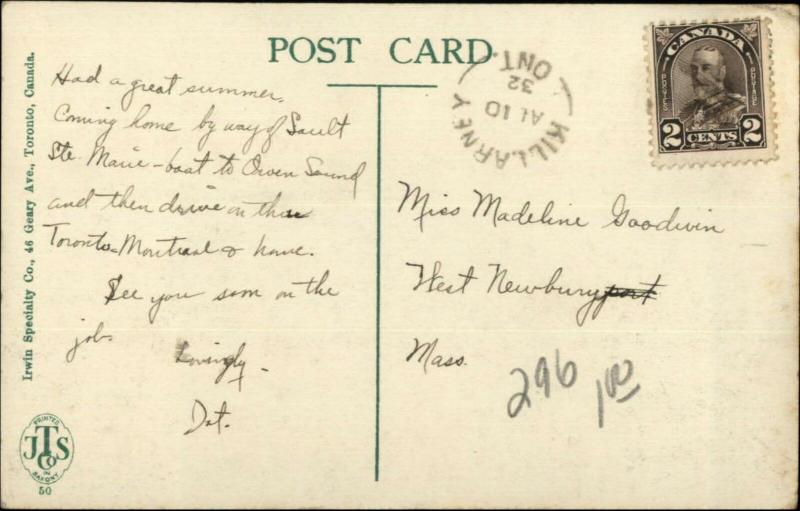 POST CARD
Had a great summer.
Coming home by way of Sault
Ste. Marie - boat to Owen Sound
and then drive on thru
Toronto - Montreal & home.
See you soon on the
job.
Lovingly -
Dot.
Irwin Specialty Co., 46 Geary Ave., Toronto, Canada.
PRINTED
JTS
Co
IN
SAXONY
50
KILLARNEY
AU 10
32
ONT.
CANADA
POSTES
POSTAGE
2 CENTS 2
Miss Madeline Goodwin
West Newburyport
Mass.
296
100